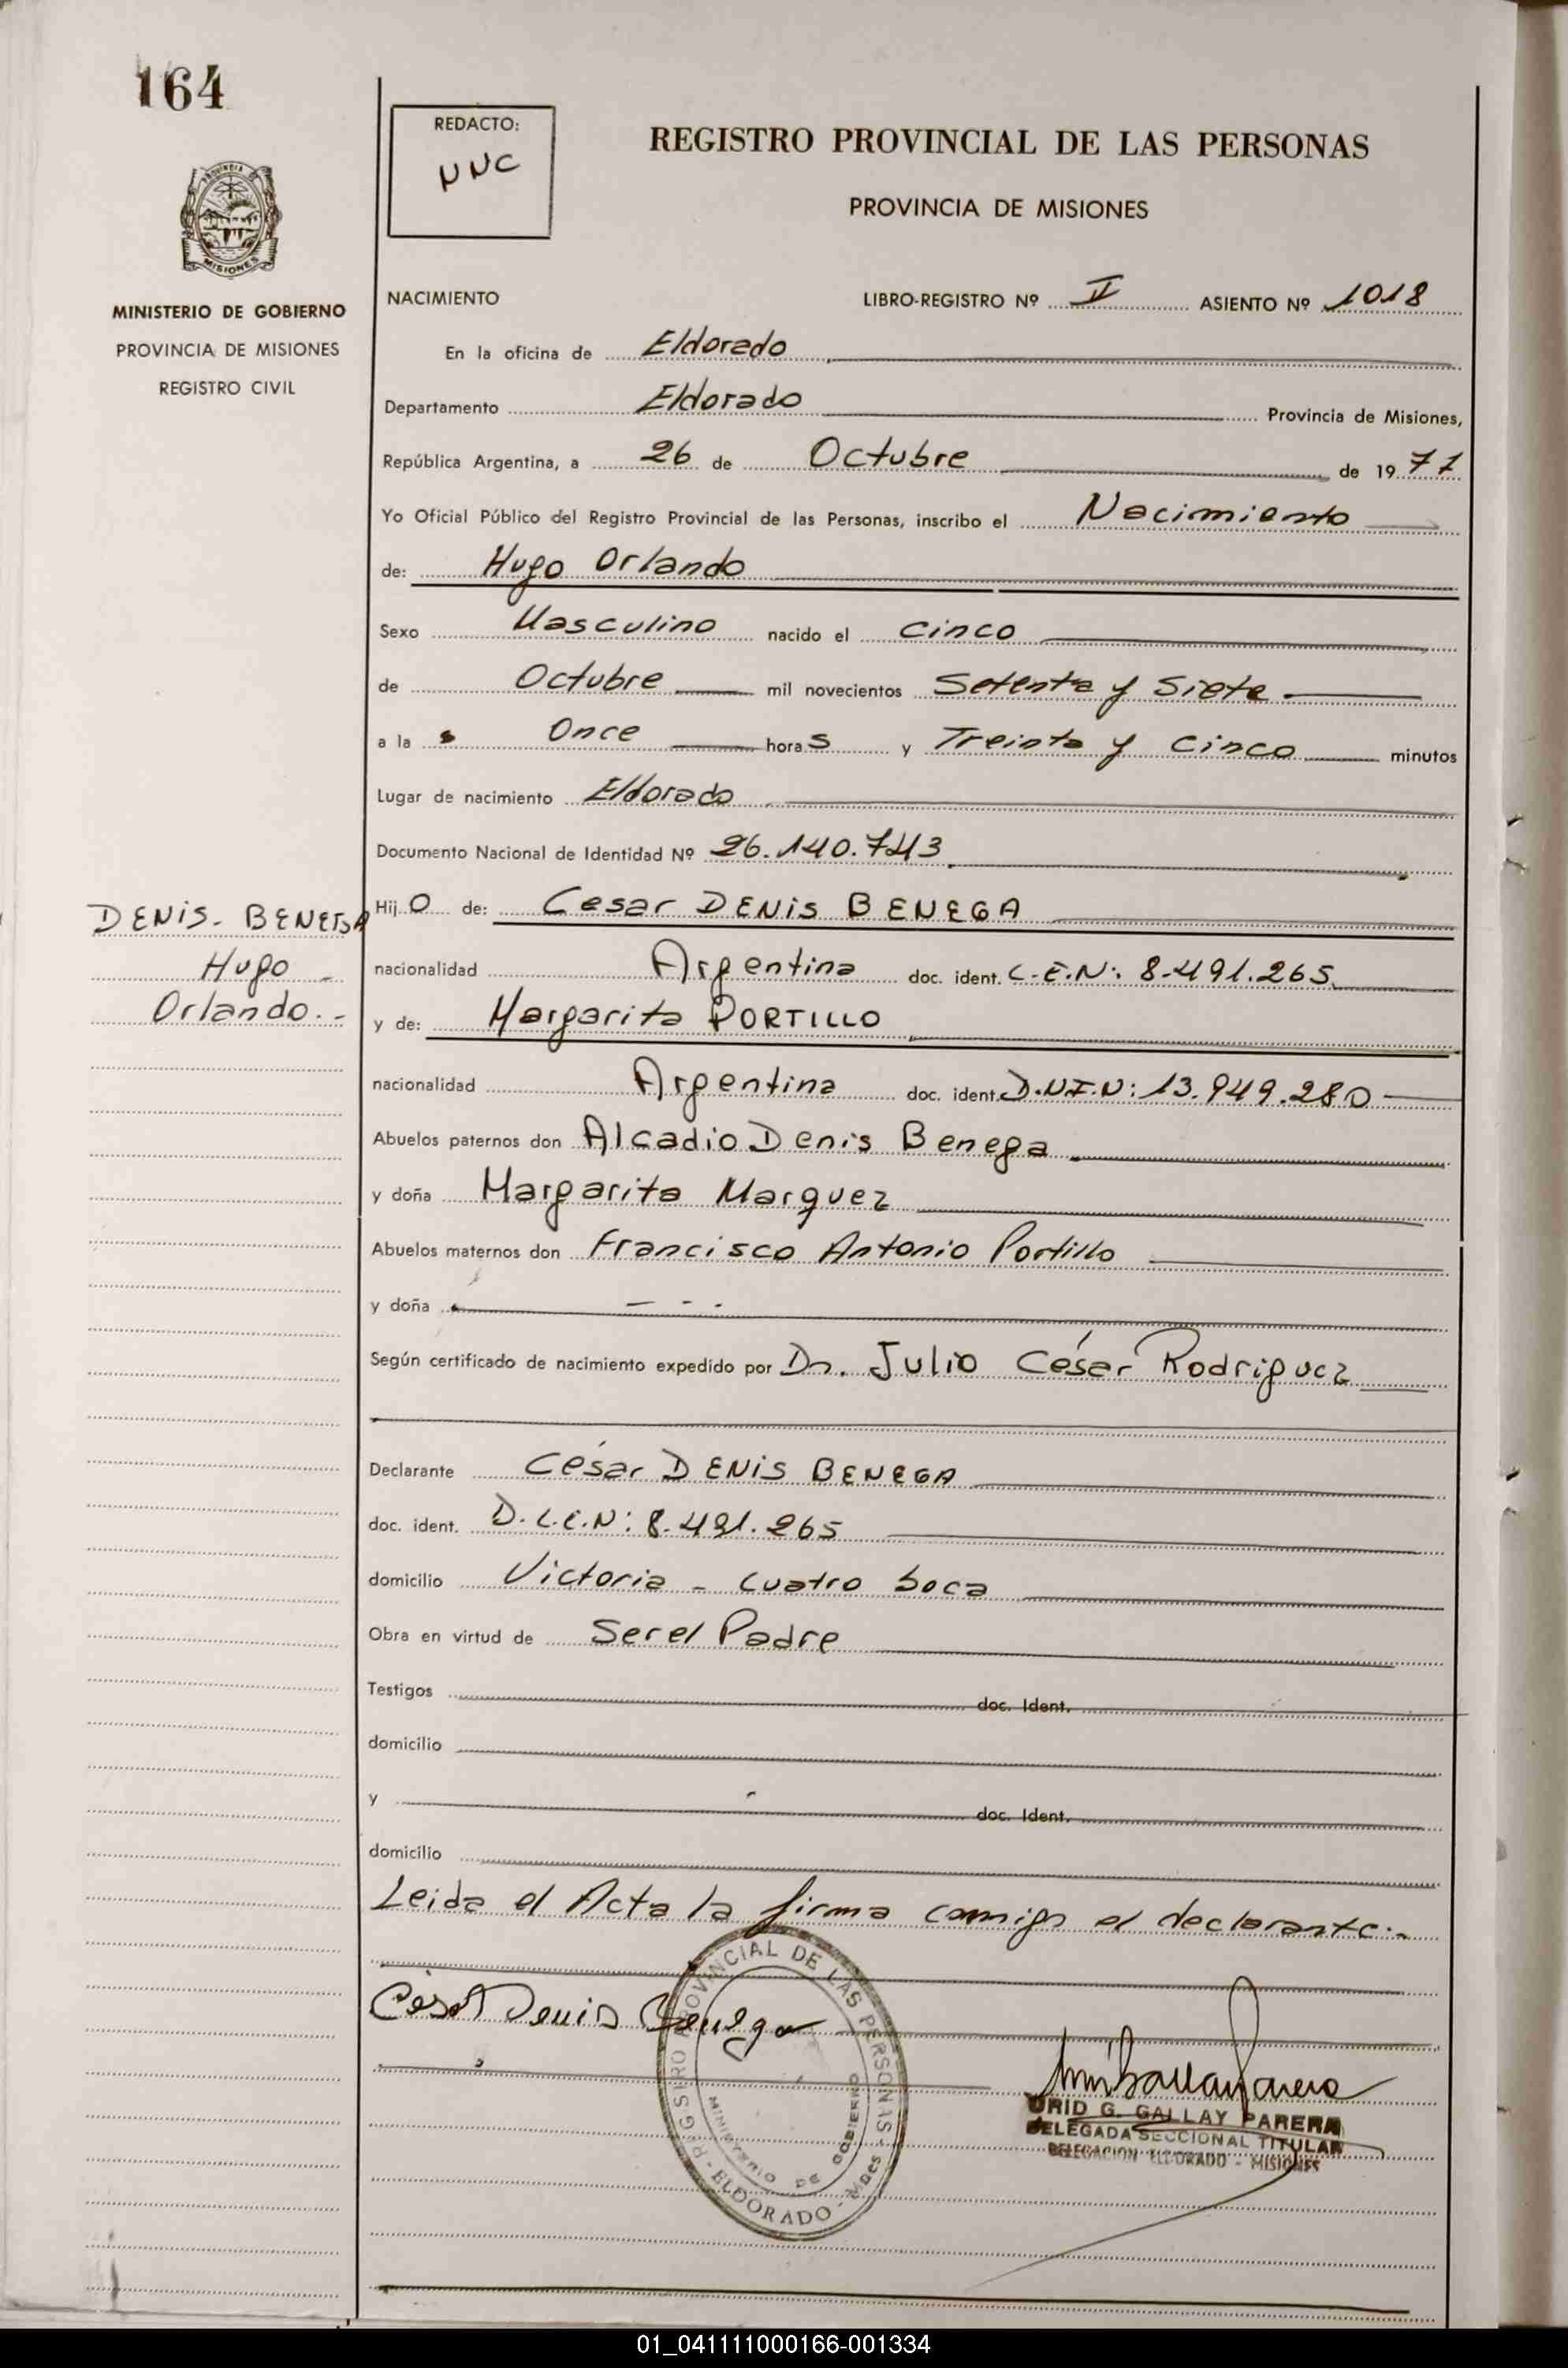 164
REDACTO:
NNC
REGISTRO PROVINCIAL DE LAS PERSONAS
PROVINCIA DE MISIONES
PROVINCIA DE
MISIONES
MINISTERIO DE GOBIERNO
PROVINCIA DE MISIONES
REGISTRO CIVIL
NACIMIENTO LIBRO-REGISTRO Nº II ASIENTO Nº 1018
En la oficina de Eldorado
Departamento Eldorado Provincia de Misiones,
República Argentina, a 26 de Octubre de 1977
Yo Oficial Público del Registro Provincial de las Personas, inscribo el Nacimiento
de: Hugo Orlando
Sexo Masculino nacido el Cinco
de Octubre mil novecientos Setenta y Siete
a las Once horas y Treinta y Cinco minutos
Lugar de nacimiento Eldorado
Documento Nacional de Identidad Nº 26.140.743
Hijo de: Cesar DENIS BENEGA
DENIS - BENEGA
Hugo
Orlando.-
nacionalidad Argentina doc. ident. L.E.N: 8.491.265
y de: Margarita PORTILLO
nacionalidad Argentina doc. ident. D.N.I.N: 13.949.280
Abuelos paternos don Alcadio Denis Benega
y doña Margarita Marquez
Abuelos maternos don Francisco Antonio Portillo
y doña - - -
Según certificado de nacimiento expedido por Dr. Julio César Rodriguez
Declarante César DENIS BENEGA
doc. ident. D.L.E.N: 8.491.265
domicilio Victoria - Cuatro boca
Obra en virtud de Ser el Padre
Testigos doc. Ident.
domicilio
y doc. Ident.
domicilio
Leida el Acta la firma conmigo el declarante.-
César Denis Benega
REGISTRO PROVINCIAL DE LAS PERSONAS - ELDORADO - Mnes
MINISTERIO DE GOBIERNO
URID G. GALLAY PARERA
DELEGADA SECCIONAL TITULAR
DELEGACION ELDORADO - MISIONES
01_041111000166-001334